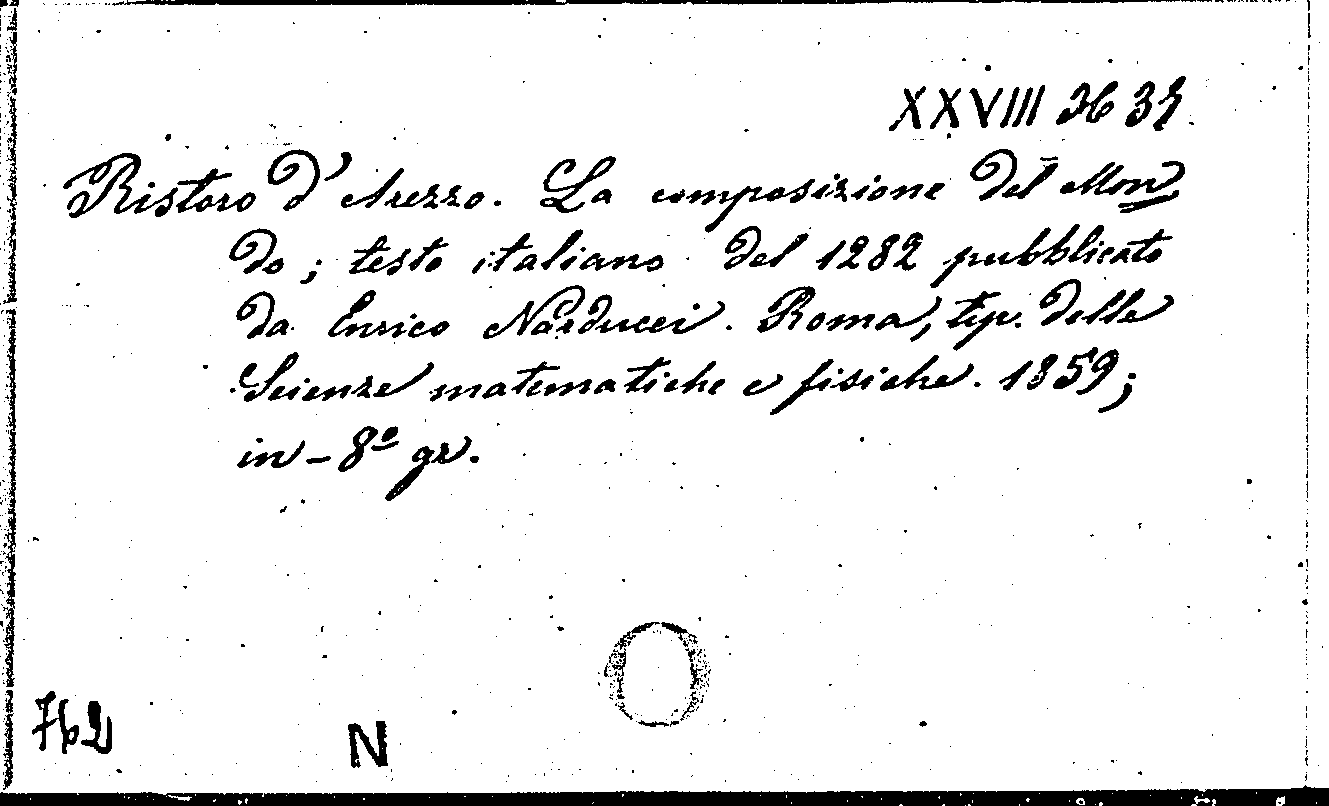 XXVIII H 34
Ristoro d'Arezzo. La composizione del Mon=
do; testo italiano del 1282 pubblicato
da Enrico Narducci. Roma, tip. delle
Scienze matematiche e fisiche. 1859;
in-8º gr.
762
N